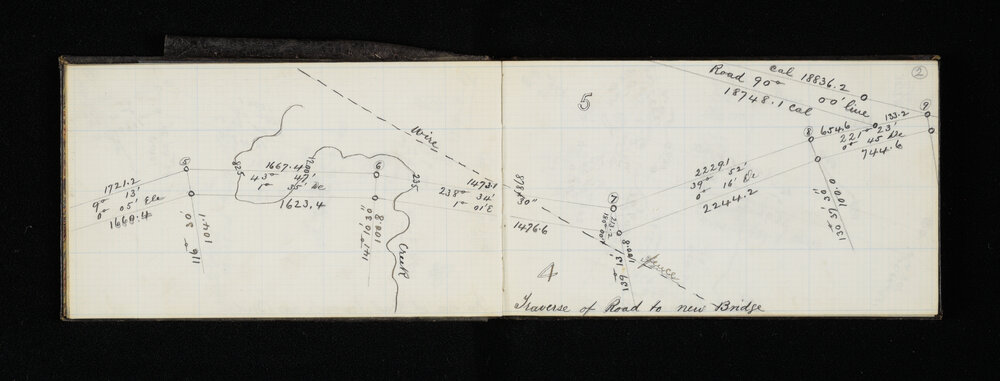 1721.2
9° 13'
0° 05' Ele
1668.4
5
116° 30'
1401
825
1667.4
43° 47'
1° 35' De
1623.4
1200
6
141° 10' 30"
1088
235
Creek
Wire
1473.1
238° 34'
1° 01' E
878.7
30"
1476.6
4
fence
Traverse of Road to new Bridge
5
7
213.2
139° 13'
1190.8
2229.1
39° 52'
0° 16' De
2244.2
8
130° 37' 3"
100.0
654.6
133.2
221° 23'
0° 45 De
744.6
9
Cal 18836.2
Road 90° 00' line
18748.1 Cal
2